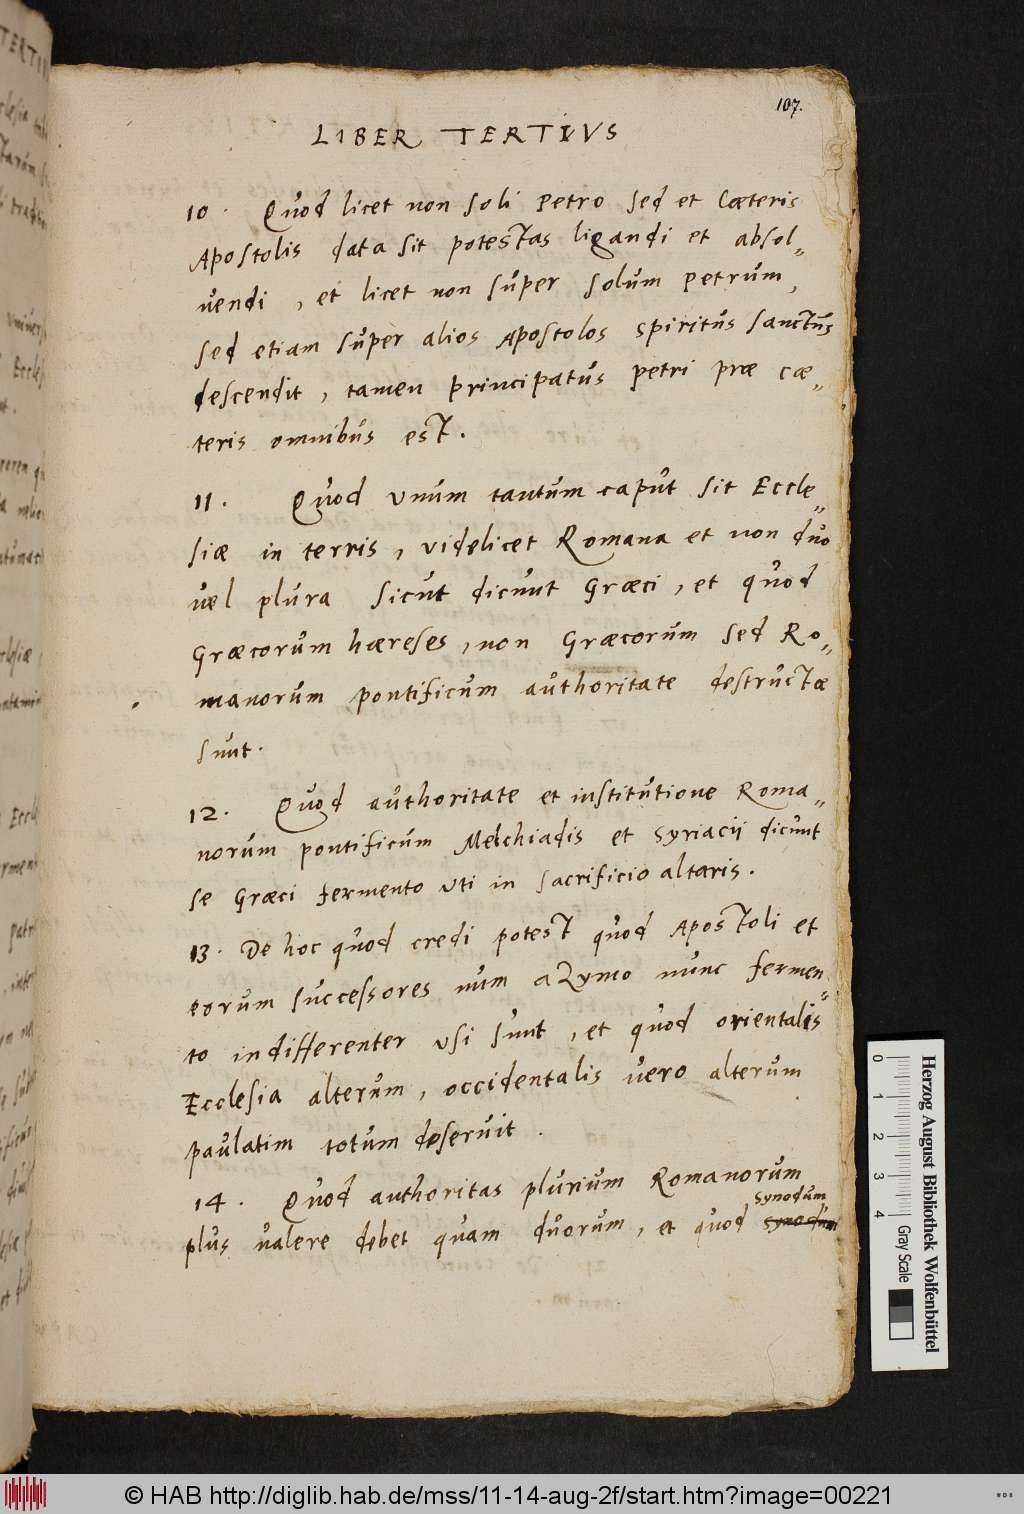 107.
LIBER TERTIVS
10. Quod licet non soli Petro sed et Cæteris
Apostolis data sit potestas ligandi et absol„
vendi, et licet non super solum Petrum,
sed etiam super alios Apostolos spiritus sanctus
descendit, tamen principatus petri præ cæ„
teris omnibus est.
11. Quod unum tantum caput sit Eccle„
siæ in terris, videlicet Romana et non duo
vel plura sicut dicunt Græci, et quod
Græcorum hæreses, non Græcorum sed Ro„
manorum pontificum authoritate destructæ
sunt.
12. Quod authoritate et institutione Roma„
norum pontificum Melchiadis et Syriacij dicunt
se Græci fermento uti in sacrificio altaris.
13. De hoc quod credi potest quod Apostoli et
eorum successores num aZymo nunc fermen„
to indifferenter usi sunt, et quod orientalis
Ecclesia alterum, occidentalis vero alterum
paulatim totum deservit.
14. Quod authoritas plurium Romanorum
synodum
plus valere debet quam duorum, et quod synodum
Herzog August Bibliothek Wolfenbüttel
0 1 2 3 4 Gray Scale
© HAB http://diglib.hab.de/mss/11-14-aug-2f/start.htm?image=00221